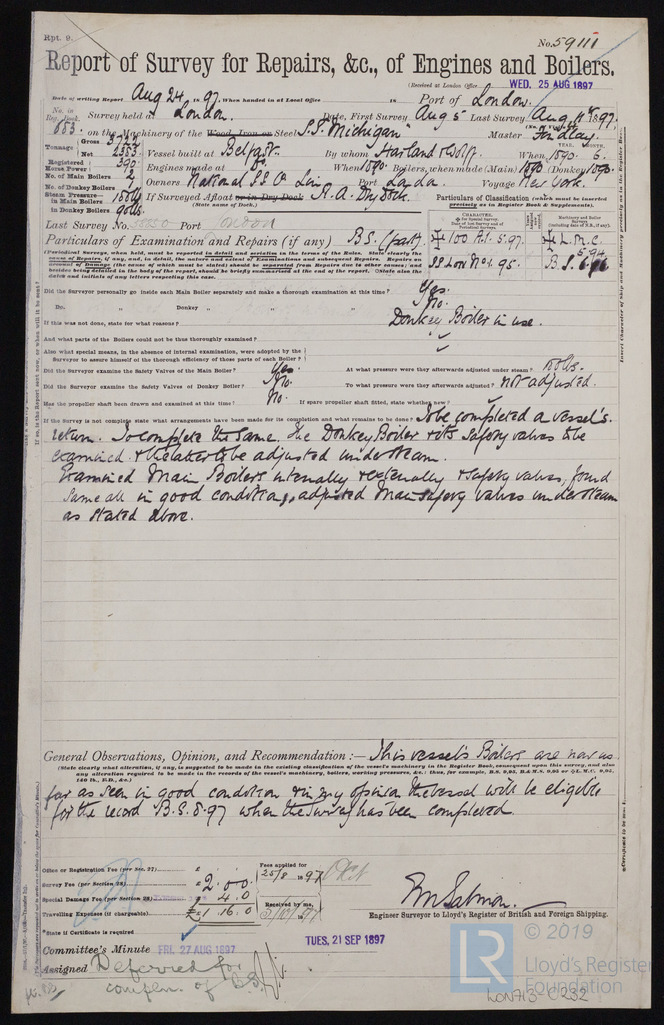 Rpt. 9.
No. 59111
Report of Survey for Repairs, &c., of Engines and Boilers.
(Received at London Office WED. 25 AUG 1897
Date of writing Report Aug 24 97. When handed in at Local Office 18 Port of London.
No. in Reg. Book. Survey held at London. Date, First Survey Aug 5 Last Survey Aug 1897.
683 on the Machinery of the Wood, Iron or Steel S.S. "Michigan" Master Findlay.
Tonnage Gross Net 2353 Vessel built at Belfast. By whom Harland & Wolff. When 1890. 6.
Registered Horse Power 390 Engines made at Do. When 1890. Boilers, when made (Main) 1890 (Donkey) 1890.
No. of Main Boilers 2 Owners National SS Co Lim Port London. Voyage New York.
No. of Donkey Boilers
Steam Pressure in Main Boilers If Surveyed Afloat or in Dry Dock R. A. Dry Dock. Particulars of Classification (which must be inserted precisely as in Register Book & Supplements).
in Donkey Boilers 90lbs. (State name of Dock.)
Last Survey No. Port London
Particulars of Examination and Repairs (if any) B.S. (part).
100 A.1. 5.97. L.M.C. 5.94
SS Lon No 1. 95. B.S.
Did the Surveyor personally go inside each Main Boiler separately and make a thorough examination at this time? Yes.
Do. " Donkey " " " " No.
If this was not done, state for what reasons? Donkey Boiler in use.
And what parts of the Boilers could not be thus thoroughly examined?
Also what special means, in the absence of internal examination, were adopted by the Surveyor to assure himself of the thorough efficiency of those parts of each Boiler?
Did the Surveyor examine the Safety Valves of the Main Boiler? Yes. At what pressure were they afterwards adjusted under steam?
Did the Surveyor examine the Safety Valves of Donkey Boiler? No. To what pressure were they afterwards adjusted? not adjusted.
Has the propeller shaft been drawn and examined at this time? No. If spare propeller shaft fitted, state whether new?
If the Survey is not complete state what arrangements have been made for its completion and what remains to be done? To be completed on vessel's
return. To complete the same. The Donkey Boiler & its safety valves to be
examined & the latter to be adjusted under steam.
Examined Main Boilers internally & externally & safety valves, found
same all in good condition, adjusted Main safety valves under steam
as stated above.
General Observations, Opinion, and Recommendation:— This vessel's Boilers are now as
(State clearly what alteration, if any, is suggested to be made in the existing classification of the vessel's machinery in the Register Book, consequent upon this survey, and also
any alteration required to be made in the records of the vessel's machinery, boilers, working pressures, &c.: thus, for example, B.S. 9,95, B.&M.S. 9,95 or L.M.C. 9,95,
140 lb., F.D., &c.)
far as seen in good condition & in my opinion the vessel will be eligible
for the record B.S. 8.97 when the survey has been completed.
Office or Registration Fee (per Sec. 27)
Survey Fee (per Section 28) £ 2. 0 0.
Special Damage Fee (per Section 28) 4. 0
Travelling Expenses (if chargeable). £ 1. 16. 0
Fees applied for 25/8 1897
Received by me,
Engineer Surveyor to Lloyd's Register of British and Foreign Shipping.
*State if Certificate is required
TUES. 21 SEP 1897
Committee's Minute FRI. 27 AUG 1897
Assigned Deferred for
complen. of B.S.
© 2019
LR
Lloyd's Register
Foundation
LON713-C232